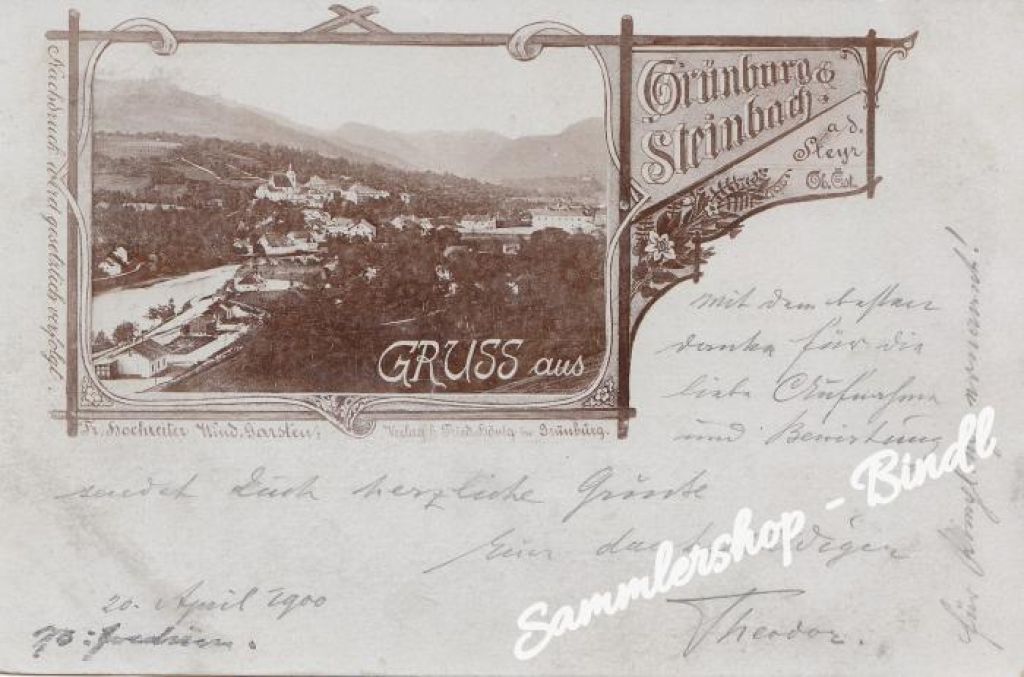 Nachdruck wird gesetzlich verfolgt.
Grünburg &
Steinbach
a. d.
Steyr
Ob. Öst.
GRUSS aus
Fr. Hochreiter Wind. Garsten.
Verlag b. Fried. König in Grünburg.
Mit dem besten
Danke für die
liebe Aufnahme
und Bewirtung
sendet Euch herzliche Grüße
Euer
Theodor.
20. April 1900
für
Sammlershop - Bindl